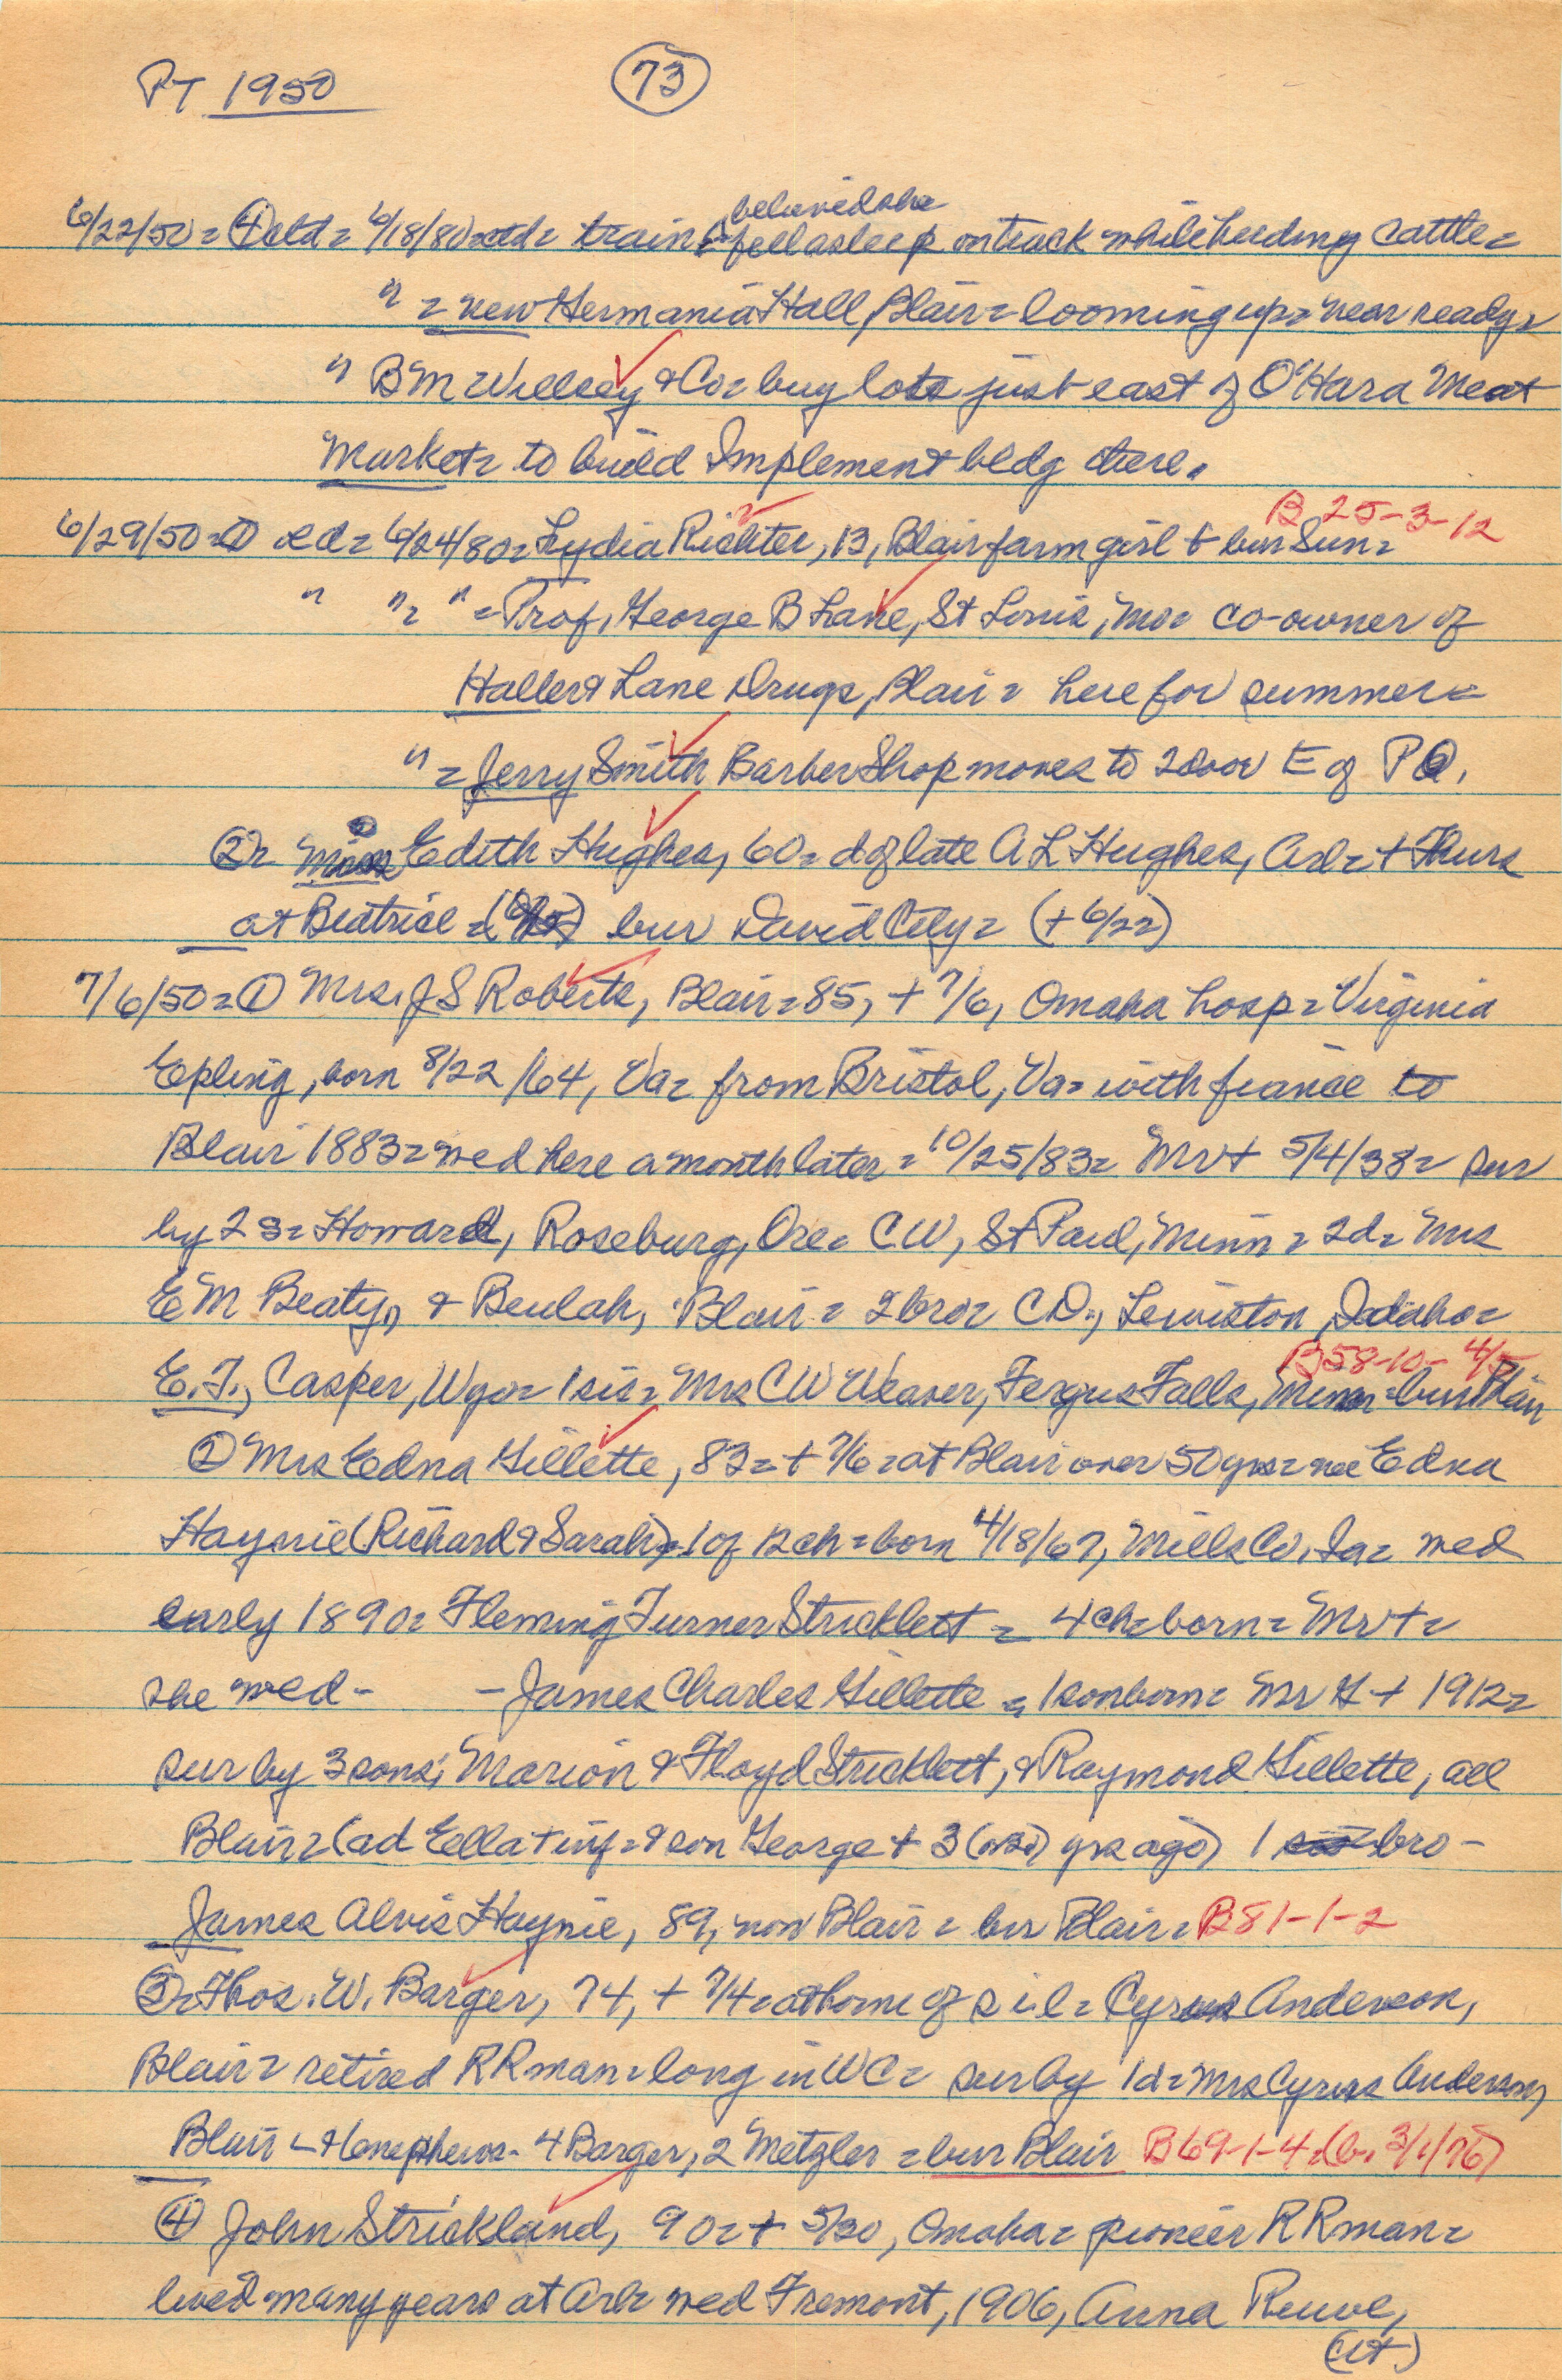 PT 1950
73
6/22/50 = ④ ctd = 6/18/80 = ctd = train = believed she fell asleep on track while herding cattle =
" = new Hermania Hall, Blair = looming up = near ready =
" B M Willsey & Co = buy lots just east of O'Hara Meat
Market = to build Implement bldg there.
6/29/50 = ① ctd = 6/24/80 = Lydia Richter, 13, Blair farm girl + bur Sun = B 25-3-12
" " = " = Prof, George B Lane, St Louis, Mo = co-owner of
Haller & Lane Drugs, Blair = here for summer =
" = Jerry Smith Barber Shop moves to 2 door E of PO.
② = Miss Edith Hughes, 60 = d of late A L Hughes, Arl = + Thurs
at Beatrice = bur David City = (+ 6/22)
7/6/50 = ① Mrs. J S Roberts, Blair = 85, + 7/6, Omaha hosp = Virginia
Epling, born 8/22/64, Va = from Bristol, Va = with fiance to
Blair 1883 = wed here a month later = 10/25/83 = Mr + 5/4/38 = sur
by 2 s = Howard, Roseburg, Ore = CW, St Paul, Minn = 2d = Mrs
E M Beaty, & Beulah, Blair = 2 bro = C D., Lewiston, Idaho =
E. T., Casper, Wyo = 1 sis = Mrs C W Weaver, Fergus Falls, Minn = bur Blair B58-10-4/5
② Mrs Edna Gillette, 83 = + 7/6 = at Blair over 50 yrs = nee Edna
Haynie (Richard & Sarah) = 1 of 12 ch = born 4/18/67, Mills Co, Ia = wed
early 1890 = Fleming Turner Stricklett = 4 ch = born = Mr + =
she wed - - James Charles Gillette = 1 son born = Mr G + 1912 =
sur by 3 sons; Marion & Floyd Stricklett, & Raymond Gillette, all
Blair = (ad Ella + inf = & son George + 3 yrs ago) 1 bro -
James Alvis Haynie, 89, now Blair = bur Blair = B81-1-2
③ = Thos. W. Barger, 74, + 7/4 = at home of s i l = Cyrus Anderson,
Blair = retired RR man = long in WC = sur by 1 d = Mrs Cyrus Anderson,
Blair nephews - 4 Barger, 2 Metzler = bur Blair B69-1-4 = (b. 3/1/76)
④ John Strickland, 90 = + 5/30, Omaha = pioneer RR man =
lived many years at Arl = wed Fremont, 1906, Anna Reuve,
(ct)